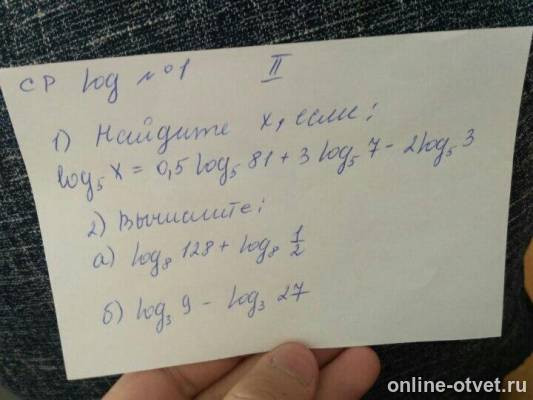 СР Log №1 II
1) Найдите x, если:
log₅ x = 0,5 log₅ 81 + 3 log₅ 7 - 2 log₅ 3
2) Вычислите:
а) log₈ 128 + log₈ 1/2
б) log₃ 9 - log₃ 27
online-otvet.ru